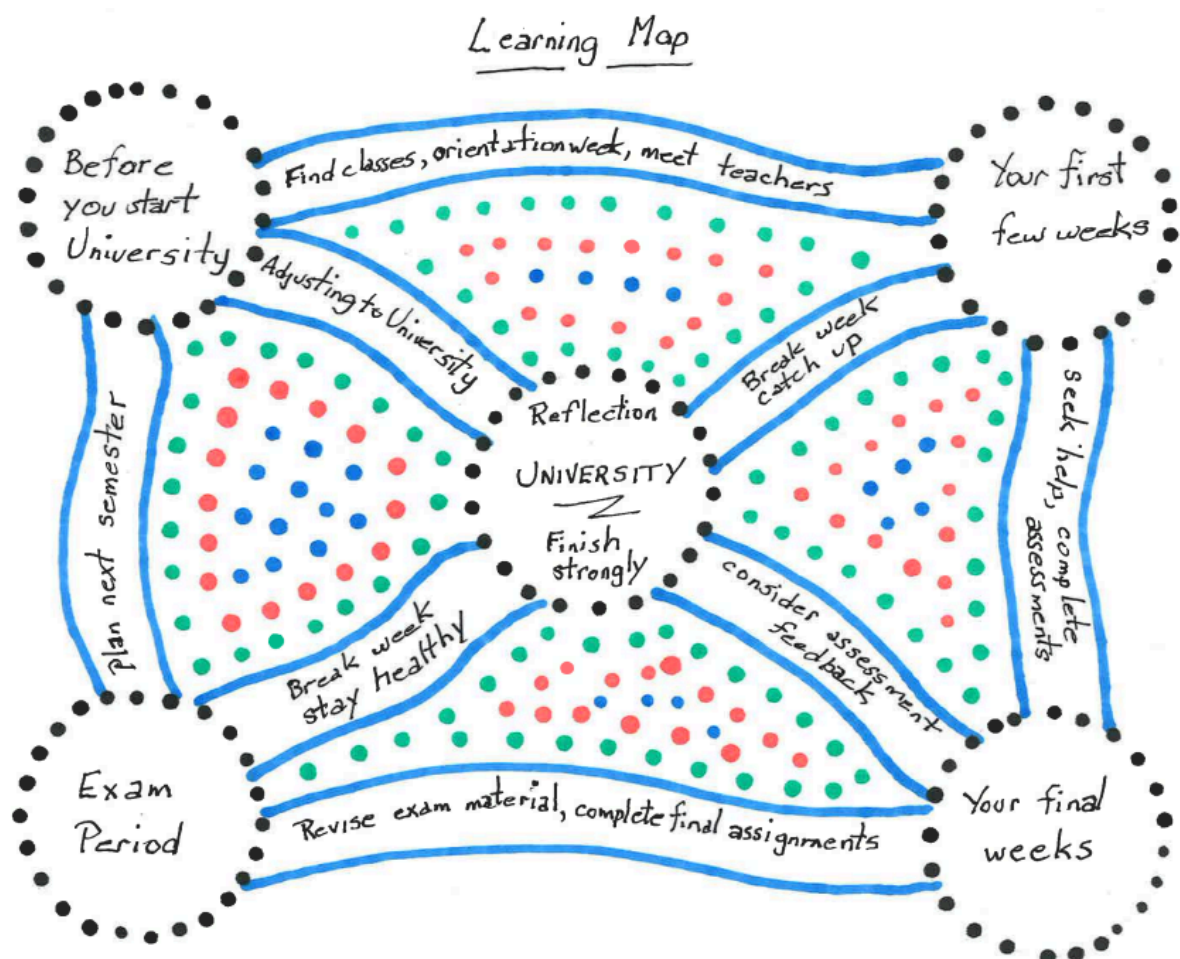 Learning Map
Before
you start
University
Find classes, orientation week, meet teachers
Your first
few weeks
Adjusting to University
Break week
catch up
Reflection
UNIVERSITY
Finish
strongly
seek help, complete
assessments
plan next semester
Break week
stay healthy
consider assessment
feedback,
Exam
Period
Revise exam material, complete final assignments
Your final
weeks